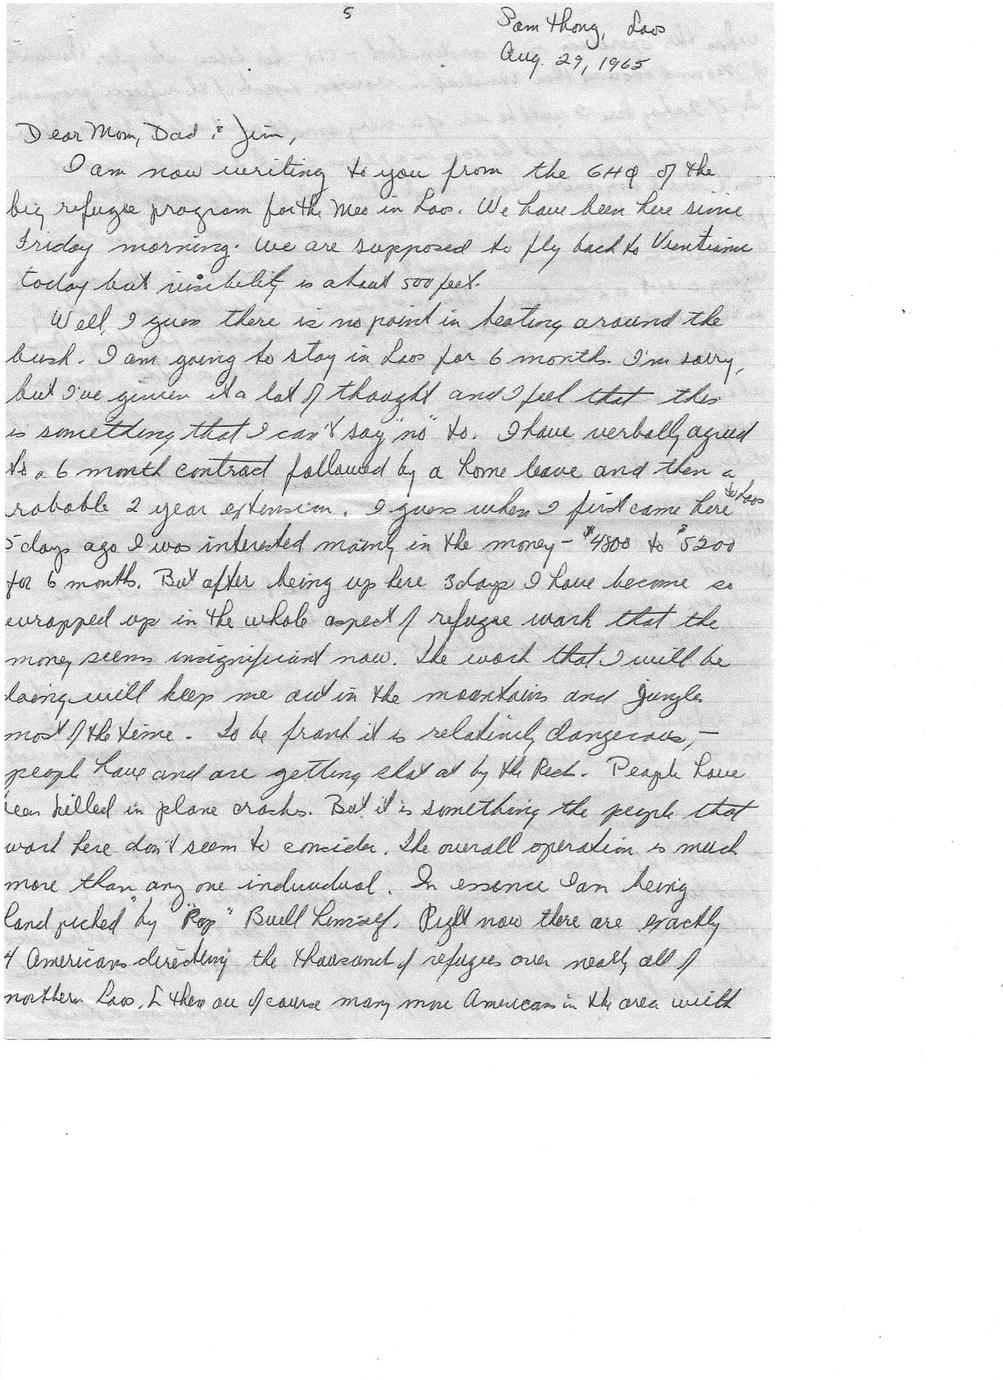 5
Sam Thong, Laos
Aug. 29, 1965
Dear Mom, Dad & Jim,
I am now writing to you from the GHQ of the
big refugee program for the Meo in Laos. We have been here since
Friday morning. We are supposed to fly back to Vientiane
today but visibility is about 500 feet.
Well, I guess there is no point in beating around the
bush. I am going to stay in Laos for 6 months. I'm sorry,
but I've given it a lot of thought and I feel that this
is something that I can't say "no" to. I have verbally agreed
to a 6 month contract followed by a home leave and then a
robable 2 year extension. I guess when I first came here to Laos
5 days ago I was interested mainly in the money - $4800 to $5200
for 6 months. But after being up here 3 days I have become so
wrapped up in the whole aspect of refugee work that the
money seems insignificant now. The work that I will be
doing will keep me out in the mountains and jungles
most of the time. To be frank it is relatively dangerous, -
people have and are getting shot at by the Reds. People have
been killed in plane crashes. But it is something the people that
work here don't seem to consider. The overall operation is much
more than any one individual. In essence I am being
hand picked" by "Pop" Buell himself. Right now there are exactly
4 Americans directing the thousand of refugees over nearly all of
northern Laos. there are of course many more Americans in the area with